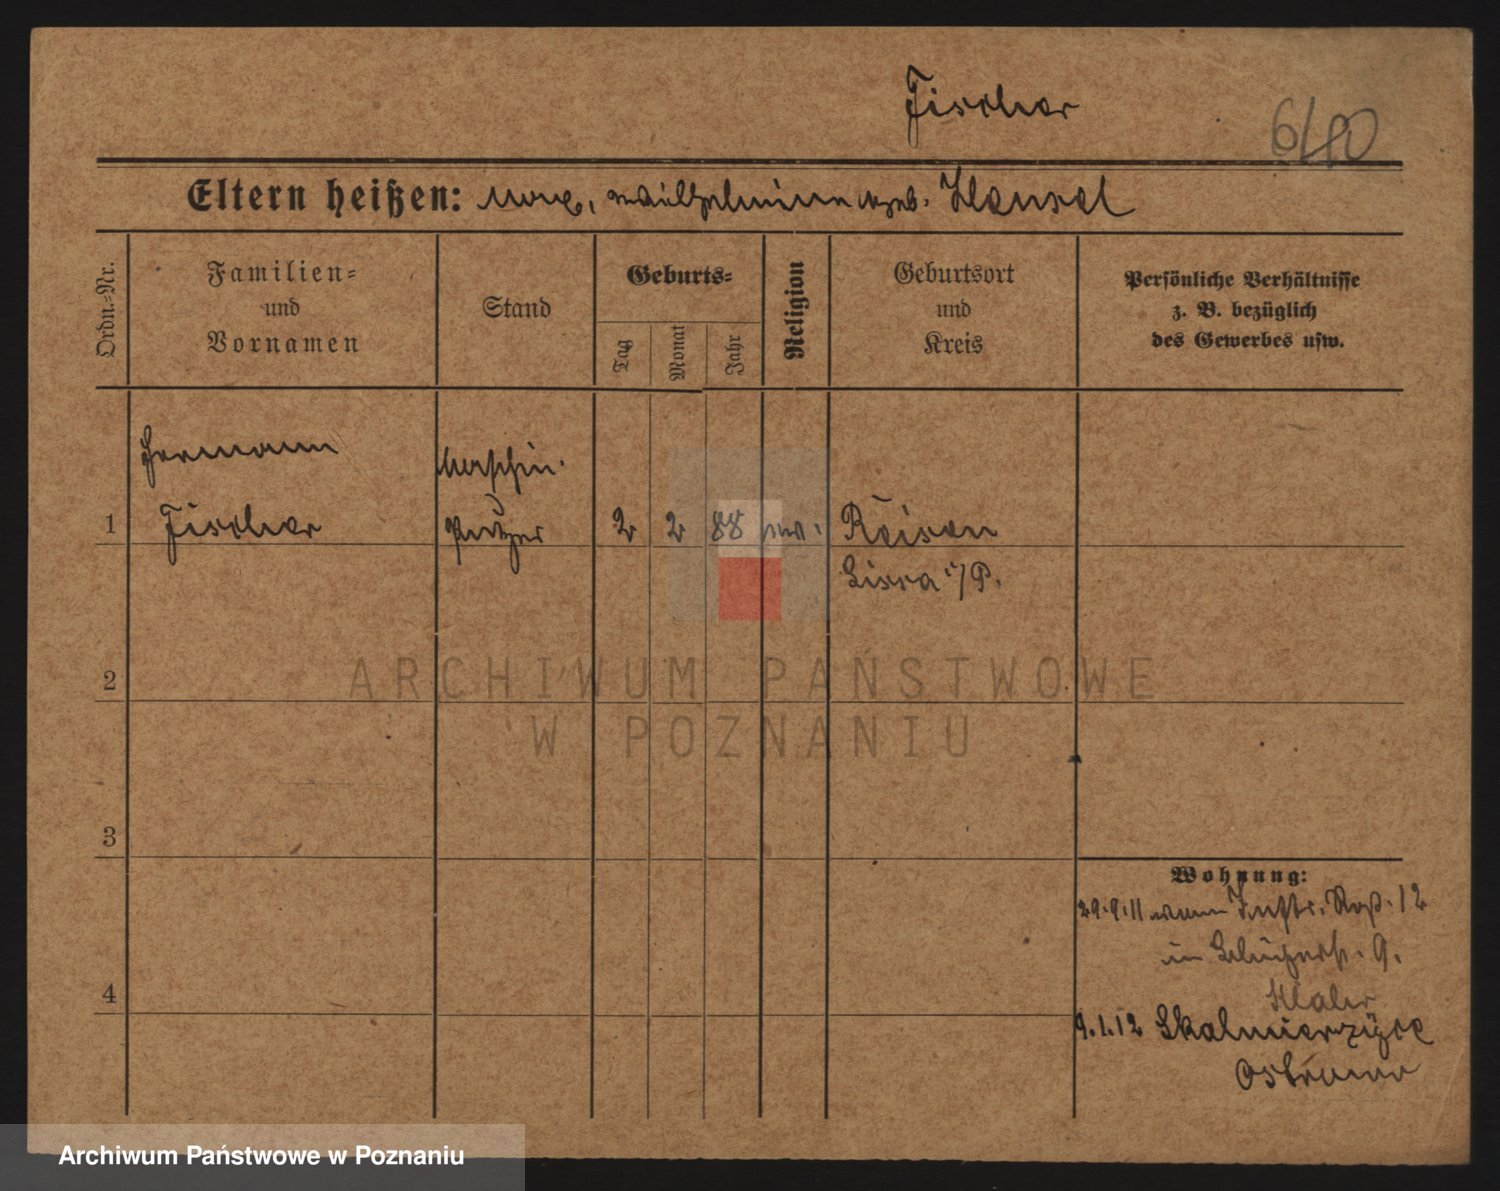 Fischer
Eltern heißen: geb. Hensel
Ordn.-Nr.
Familien- und Vornamen
Stand
Geburts-
Tag
Monat
Jahr
Religion
Geburtsort und Kreis
Persönliche Verhältnisse
z. B. bezüglich
des Gewerbes usw.
Hermann
Maschin.
1 Fischer putzer 2 2 88 ev. Reisen
Lissa i/P.
2
3
Wohnung:
29.9.11 12
in Blücherst. 9.
4
9.1.12 Skalmierzyce
Ostrowo
ARCHIWUM PAŃSTWOWE
W POZNANIU
Archiwum Państwowe w Poznaniu